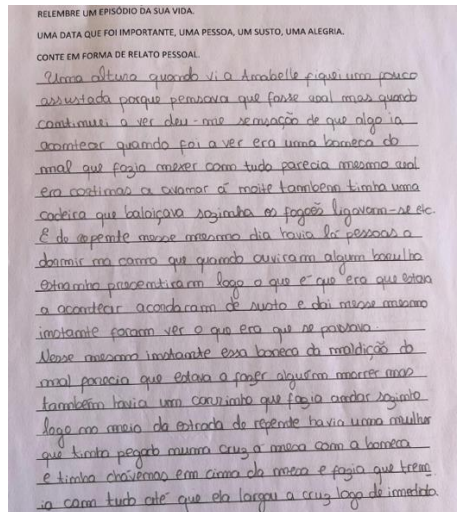 RELEMBRE UM EPISÓDIO DA SUA VIDA.
UMA DATA QUE FOI IMPORTANTE, UMA PESSOA, UM SUSTO, UMA ALEGRIA.
CONTE EM FORMA DE RELATO PESSOAL.
Uma altura quando vi a Annabelle fiquei um pouco
assustada porque pensava que fosse real mas quando
continuei a ver deu-me sensação de que algo ia
acontecer quando foi a ver era uma boneca do
mal que fazia mexer com tudo parecia mesmo real
era cortinas a avanar á noite tambem tinha uma
cadeira que baloiçava sozinha os fogões ligavam-se etc.
E do repente nesse mesmo dia havia lá pessoas a
dormir na cama que quando ouviram algum barulho
estranho logo o que é que era que estava
a acontecer acordaram de susto e dai nesse mesmo
instante foram ver o que era que se passava.
Nesse mesmo instante essa boneca da maldição do
mal parecia que estava a fazer alguém morrer mas
também havia um carrinho que fazia andar sozinho
logo no meio da estrada de repende havia uma mulher
que tinha pegado numa cruz a mesa com a boneca
e tinha em cima da mesa e fazia que trem
ia com tudo até que ela largou a cruz logo de imediato.